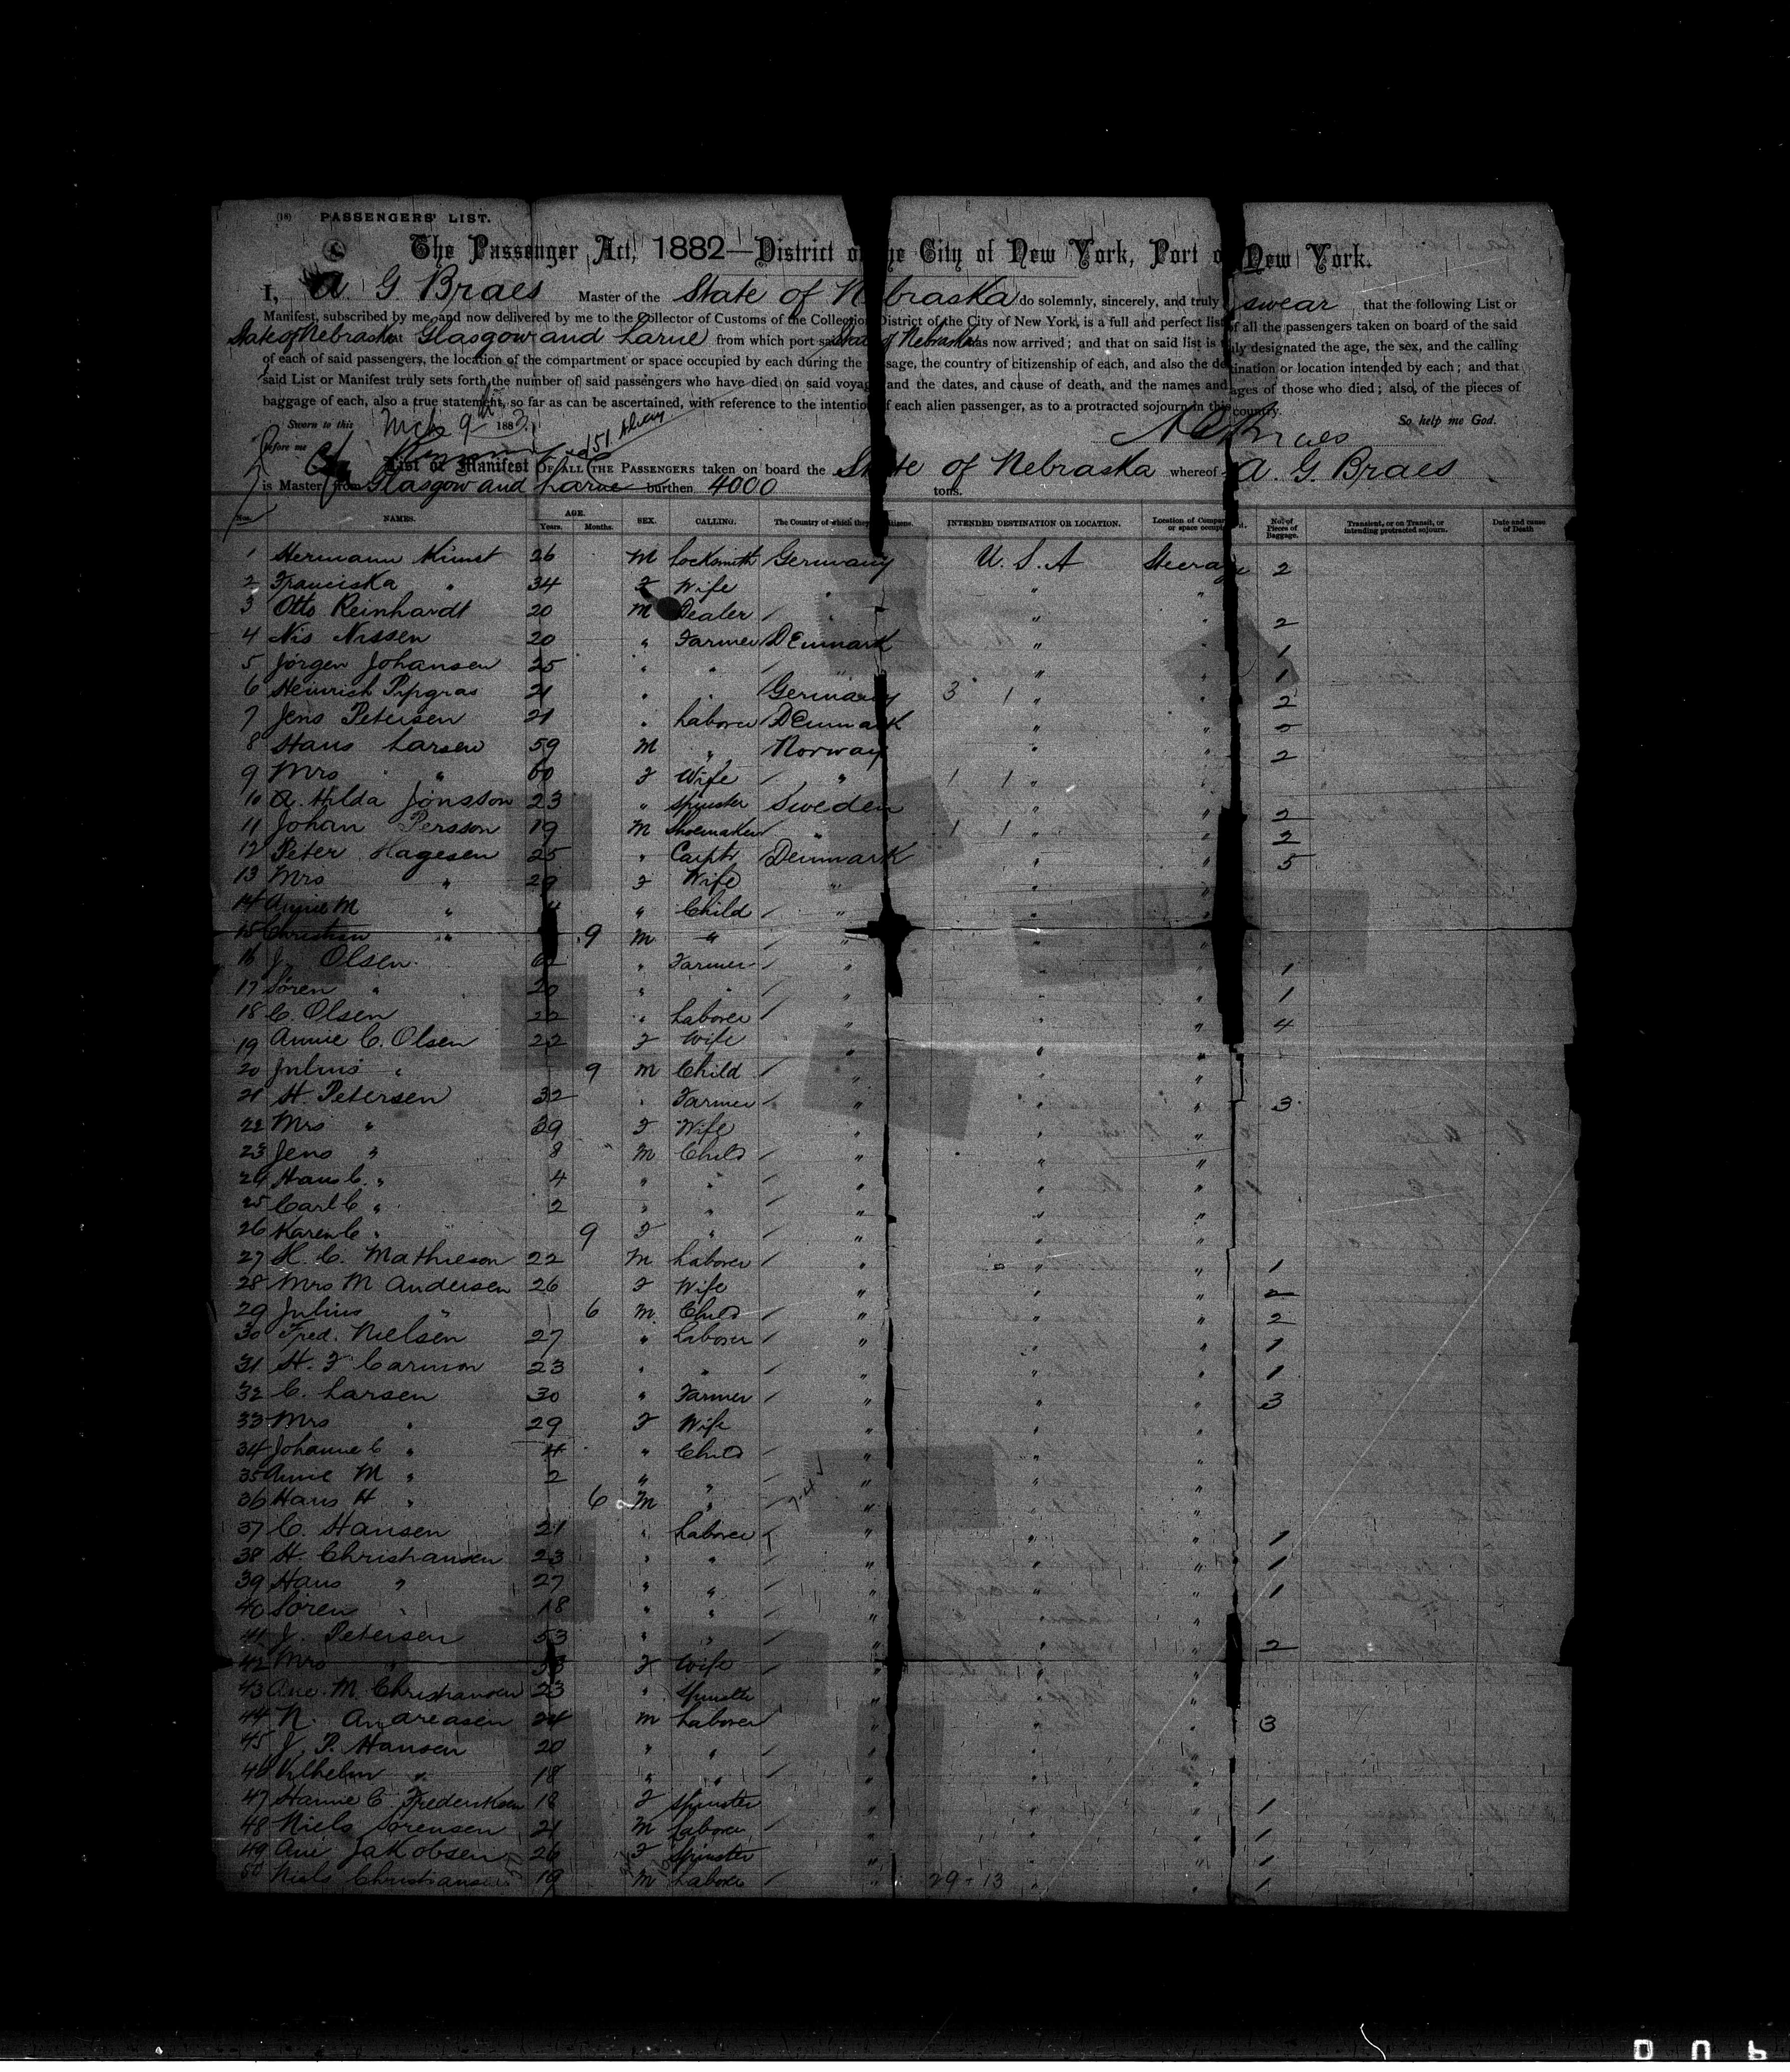 (18) PASSENGERS' LIST.
The Passenger Act, 1882—District of the City of New York, Port of New York.
I, A. G. Braes Master of the State of Nebraska do solemnly, sincerely, and truly swear that the following List or
Manifest, subscribed by me, and now delivered by me to the Collector of Customs of the Collection District of the City of New York, is a full and perfect list of all the passengers taken on board of the said
State of Nebraska at Glasgow and Larne from which port said State of Nebraska has now arrived; and that on said list is truly designated the age, the sex, and the calling
of each of said passengers, the location of the compartment or space occupied by each during the passage, the country of citizenship of each, and also the destination or location intended by each; and that
said List or Manifest truly sets forth the number of said passengers who have died on said voyage and the dates, and cause of death, and the names and ages of those who died; also, of the pieces of
baggage of each, also a true statement, so far as can be ascertained, with reference to the intention of each alien passenger, as to a protracted sojourn in this country.
Sworn to this Mch 9th 1883 So help me God.
Before me A G Braes
List or Manifest OF ALL THE PASSENGERS taken on board the State of Nebraska whereof A. G. Braes
is Master, from Glasgow and Larne burthen 4000 tons.
Nos. NAMES. AGE. Years. Months. SEX. CALLING. The Country of which they are citizens. INTENDED DESTINATION OR LOCATION. Location of Compartment or space occupied. No. of Pieces of Baggage. Transient, or on Transit, or intending protracted sojourn. Date and cause of Death
1 Hermann Kunst 26 M Locksmith Germany U. S. A Steerage 2
2 Franciska " 34 F Wife " " "
3 Otto Reinhardt 20 M Dealer " " " 2
4 Nis Nissen 20 " Farmer Denmark " " 1
5 Jörgen Johansen 25 " " " " " 1
6 Heinrich Pipgras 21 " " Germany 3 1 " " 2
7 Jens Petersen 21 " Laborer Denmark " "
8 Hans Larsen 59 M " Norway " " 2
9 Mrs " 60 F Wife " 1 1 " "
10 A. Hilda Jonsson 23 " Spinster Sweden " " 2
11 Johan Persson 19 M Shoemaker " 1 1 " " 2
12 Peter Hagesen 25 " Carptr Denmark " " 5
13 Mrs " 29 F Wife " " "
14 Annie M " 4 " Child " " "
15 Christian " 9 M " " " "
16 J. Olsen 62 " Farmer " " " 1
17 Sören " 20 " " " " " 1
18 C. Olsen 22 " Laborer " " " 4
19 Annie C. Olsen 22 F Wife " " "
20 Julius " 9 M Child " " "
21 H. Petersen 32 " Farmer " " " 3
22 Mrs " 39 F Wife " " "
23 Jens " 8 M Child " " "
24 Hans C. " 4 " " " " "
25 Carl C " 2 " " " " "
26 Karen C " 9 F " " " "
27 H. C. Mathieson 22 M Laborer " " " 1
28 Mrs M Andersen 26 F Wife " " " 2
29 Julius " 6 M Child " " " 2
30 Fred. Nielsen 27 " Laborer " " " 1
31 H. F Carmon 23 " " " " " 1
32 C. Larsen 30 " Farmer " " " 3
33 Mrs " 29 F Wife " " "
34 Johanne C " 4 " Child " " "
35 Annie M " 2 " " " " "
36 Hans H " 6 M " " " "
37 C. Hansen 21 " Laborer " " " 1
38 H. Christiansen 23 " " " " " 1
39 Hans " 27 " " " " " 1
40 Sören " 18 " " " " "
41 J. Petersen 53 " " " " " 2
42 Mrs " F Wife " " "
43 Ane. M. Christiansen 23 " Spinster " " "
44 N. Andreasen 24 M Laborer " " " 3
45 J. P. Hansen 20 " " " " "
46 Vilhelm " 18 " " " " "
47 Hanne C. Frederiksen 18 F Spinster " " " 1
48 Niels Sorensen 21 M Laborer " " " 1
49 Ane Jakobsen 26 F Spinster " " " 1
50 Niels Christiansen 19 M Laborer " 29 - 13 " " 1